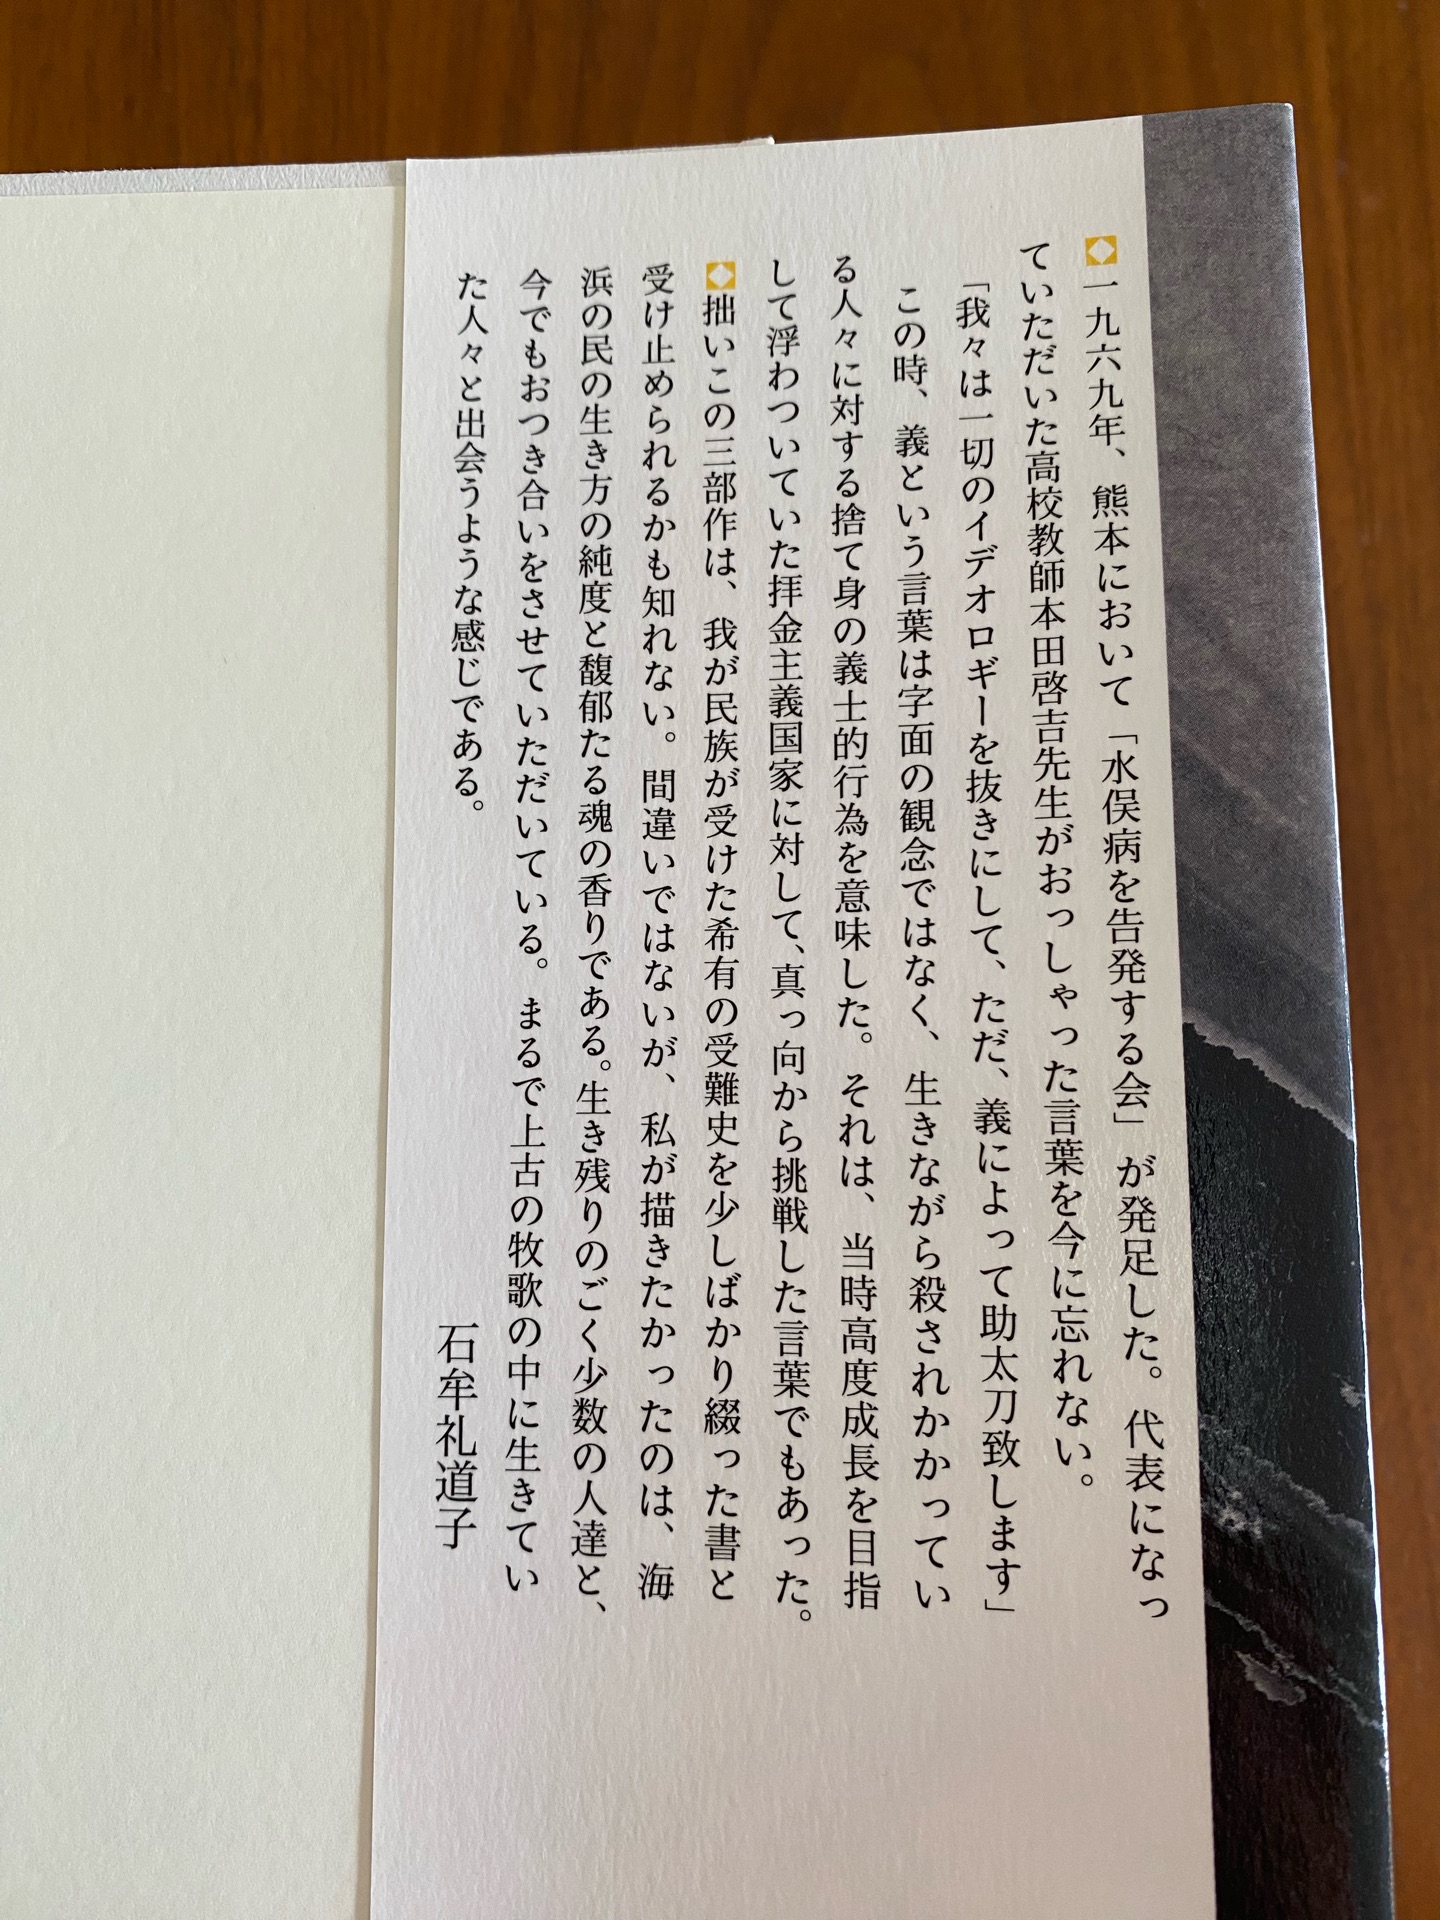 一九六九年、熊本において「水俣病を告発する会」が発足した。代表になっ
ていただいた高校教師本田啓吉先生がおっしゃった言葉を今に忘れない。
「我々は一切のイデオロギーを抜きにして、ただ、義によって助太刀致します」
この時、義という言葉は字面の観念ではなく、生きながら殺されかかってい
る人々に対する捨て身の義士的行為を意味した。それは、当時高度成長を目指
して浮わついていた拝金主義国家に対して、真っ向から挑戦した言葉でもあった。
拙いこの三部作は、我が民族が受けた希有の受難史を少しばかり綴った書と
受け止められるかも知れない。間違いではないが、私が描きたかったのは、海
浜の民の生き方の純度と馥郁たる魂の香りである。生き残りのごく少数の人達と、
今でもおつき合いをさせていただいている。まるで上古の牧歌の中に生きてい
た人々と出会うような感じである。
石牟礼道子